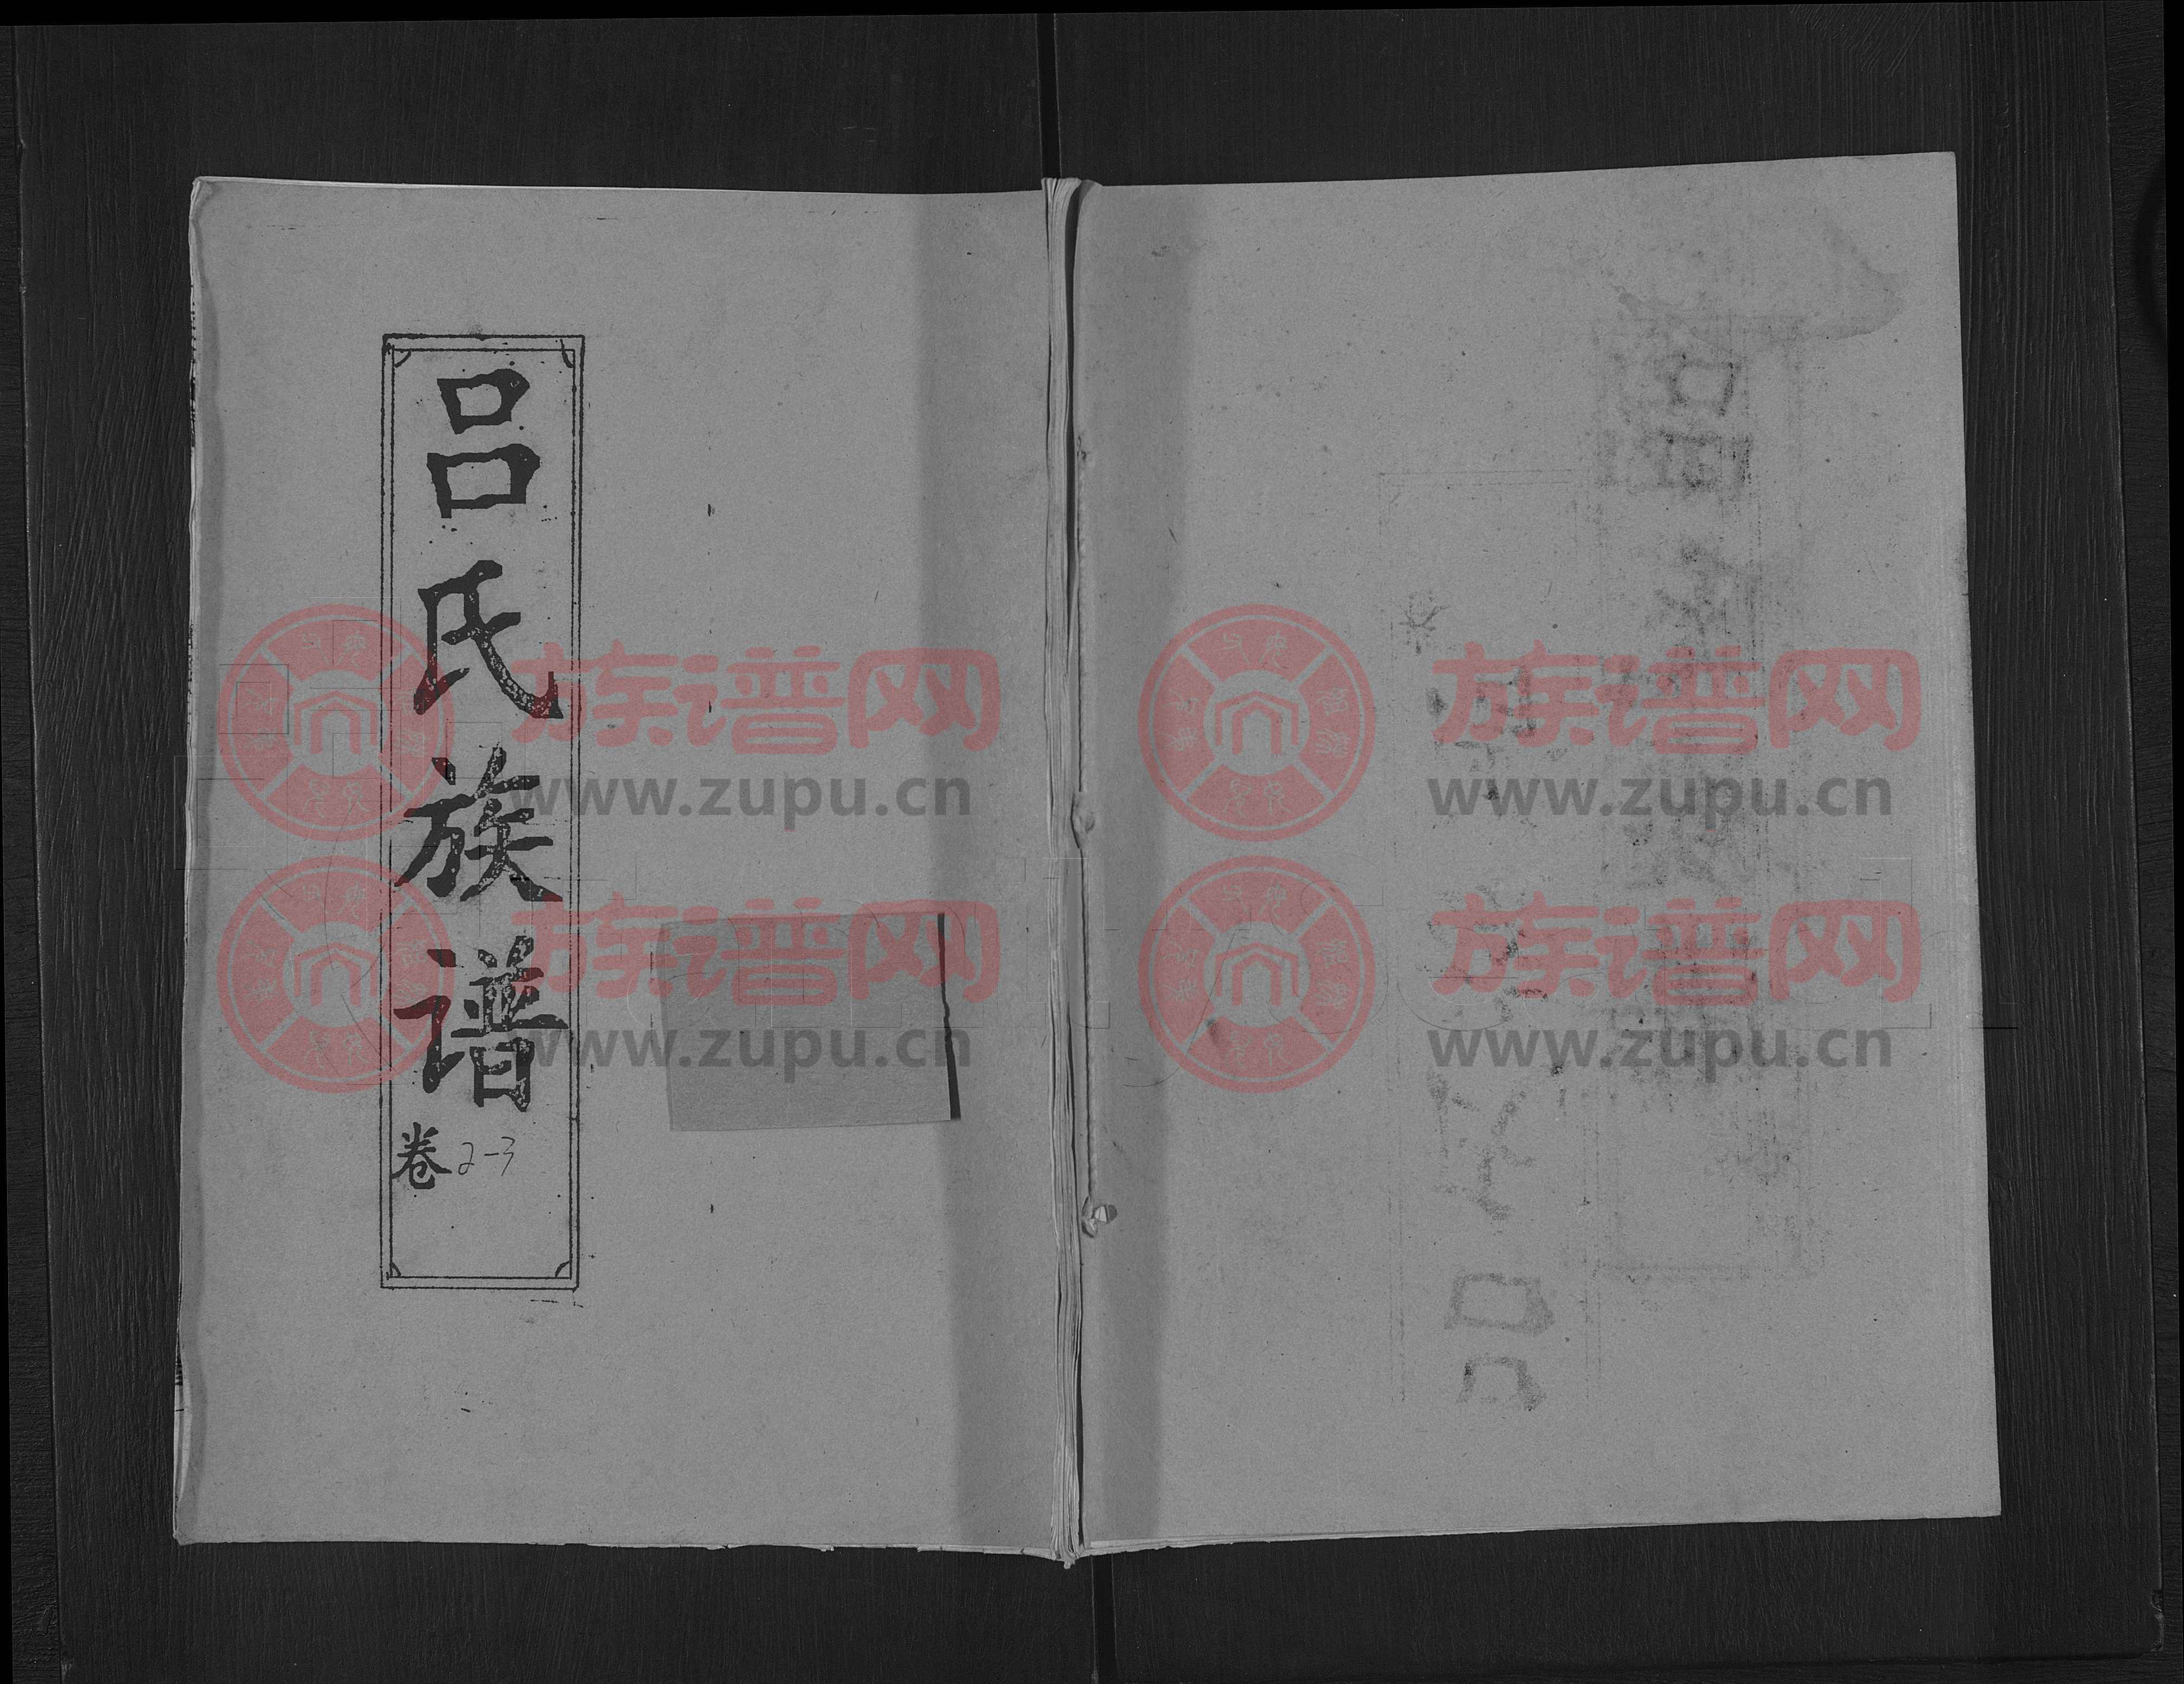 吕氏族谱
卷2-3
族谱网
www.zupu.cn
族谱网
www.zupu.cn
族谱网
www.zupu.cn
族谱网
www.zupu.cn